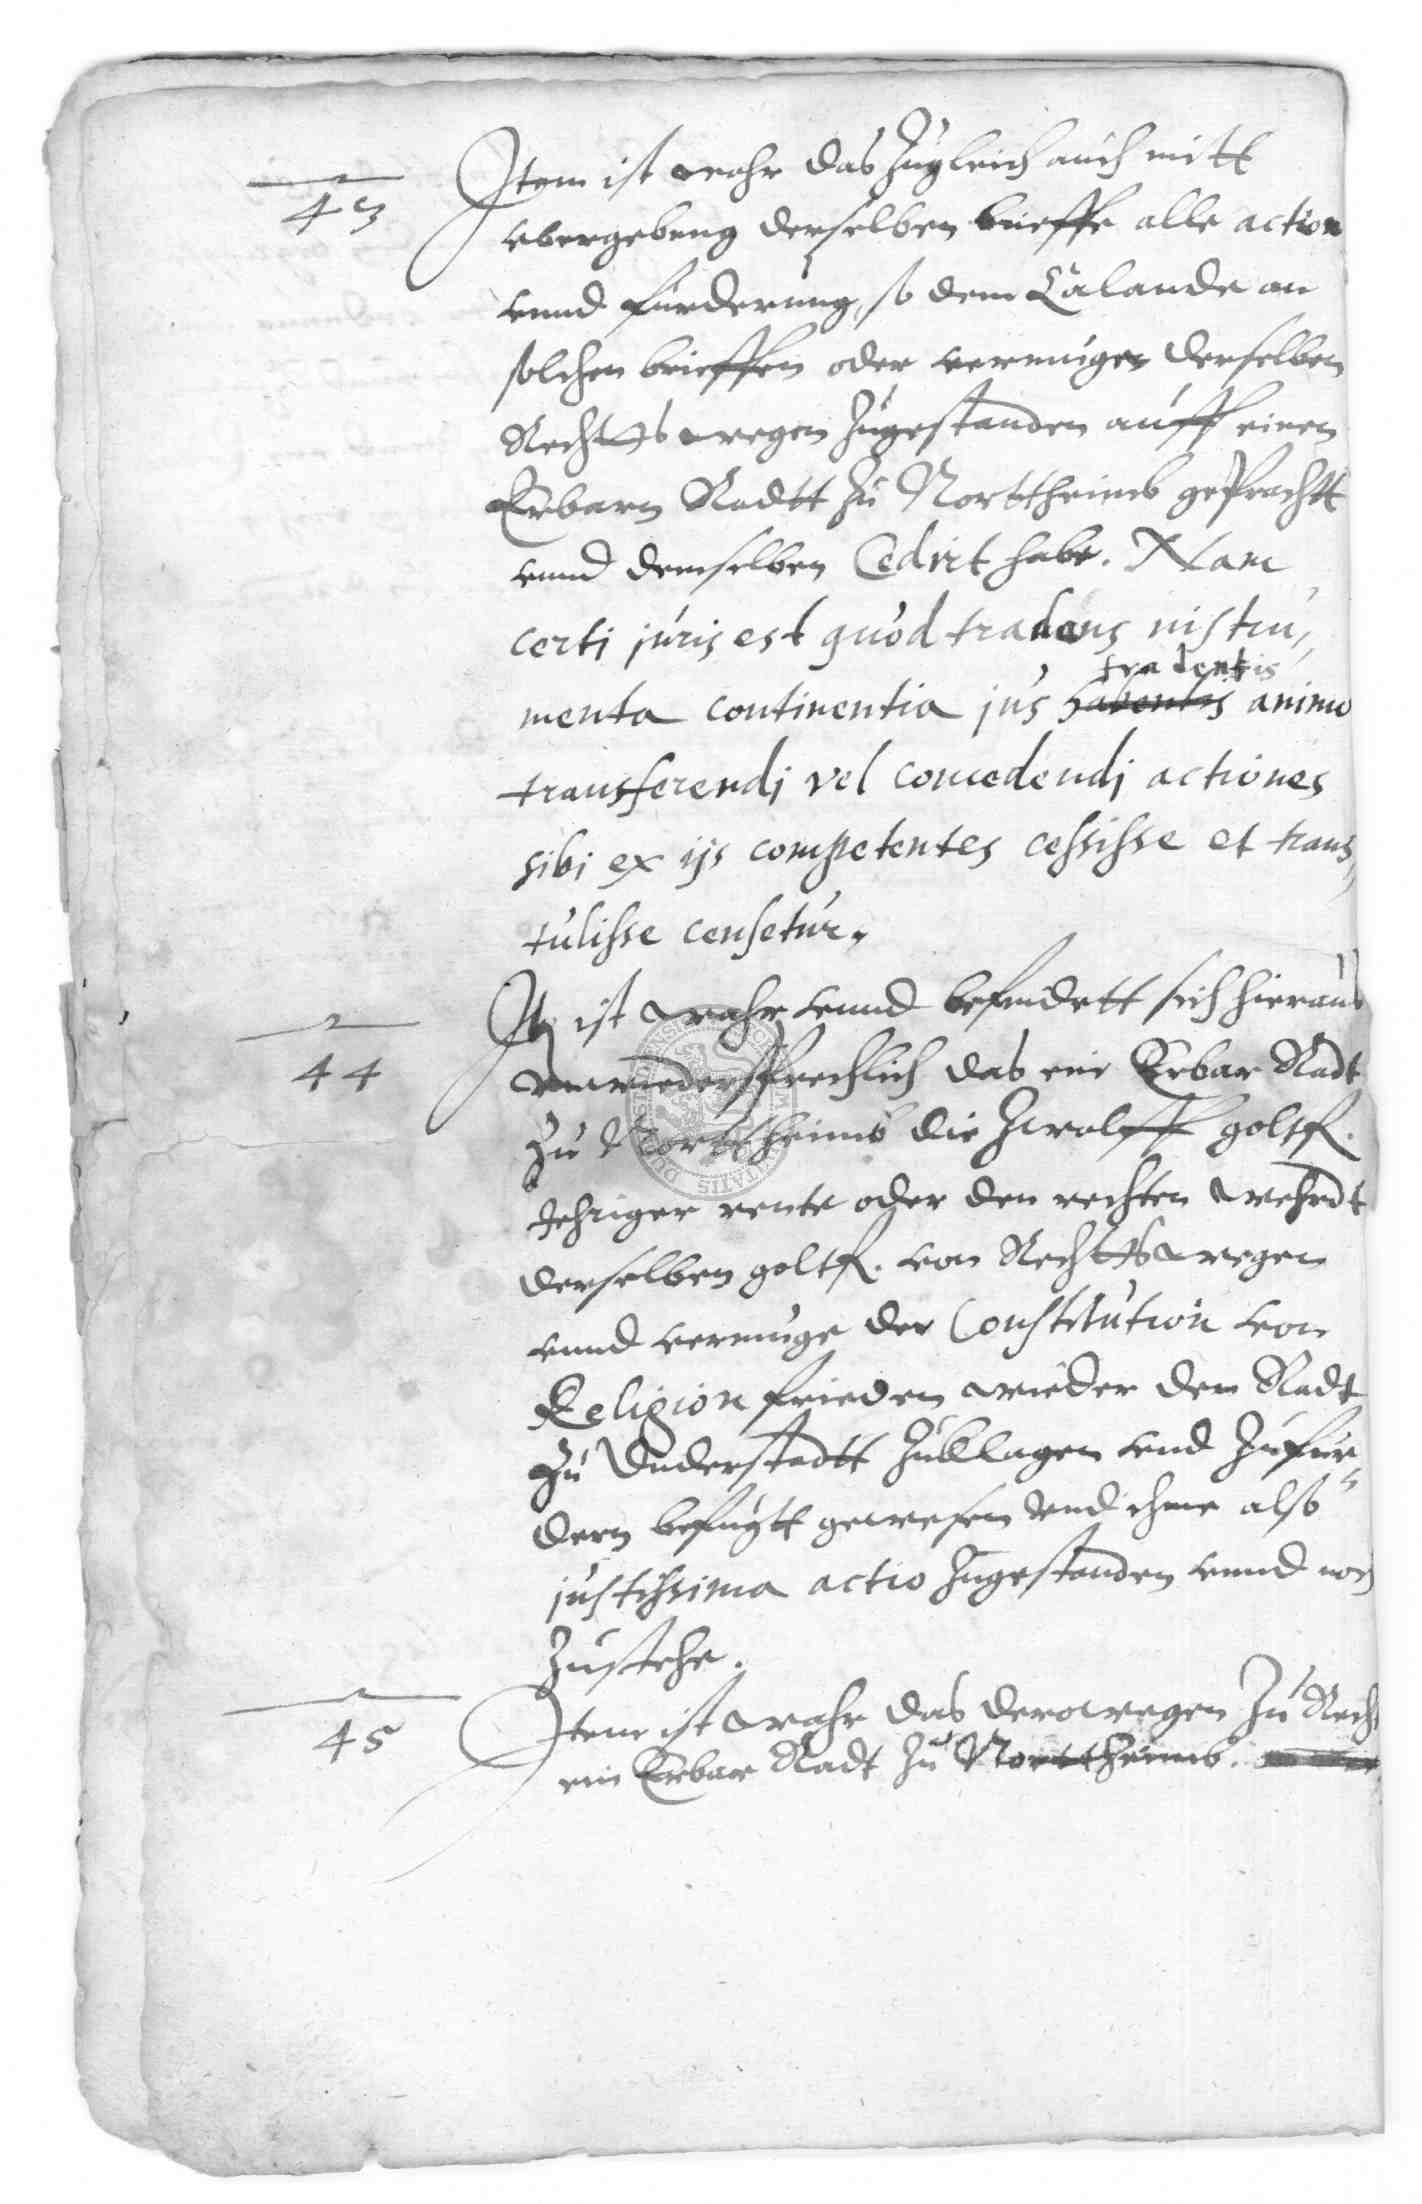 43
Item ist wahr das zugleich auch mitt
vbergebung derselben brieffe alle action
vnnd furderung, so dem Calande an
solchen brieffen oder vermuge derselben
Rechtts wegen zugestanden auff einen
Erbarn Radtt zu Northeimb gebrachtt
vnnd demselben Cedirt habe. Nam
certi juris est quod tradens instru,
tradentis
menta continentia jus habentis animo
transferendj vel concedendj actiones
sibi ex ijs competentes cessisse et trans,
tulisse censetur.
44
It ist wahr vnnd befindett sich hieraus
vnwiedersprechlich das ein Erbar Radt
zu Northeimb die zwolff goltfl.
Jehriger rente oder den rechten wehrdt
derselben goltfl. von Rechtts wegen
vnnd vermuge der Constitution von
Religion frieden wieder den Radt
zu Duderstadtt zuklagen vnd zufur,
dern befugtt gewesen vnd ihme also
justissima actio zugestanden vnnd noch
zustehe.
45
Item ist wahr das derowegen zu Recht
ein Erbar Radt zu Northeimb.